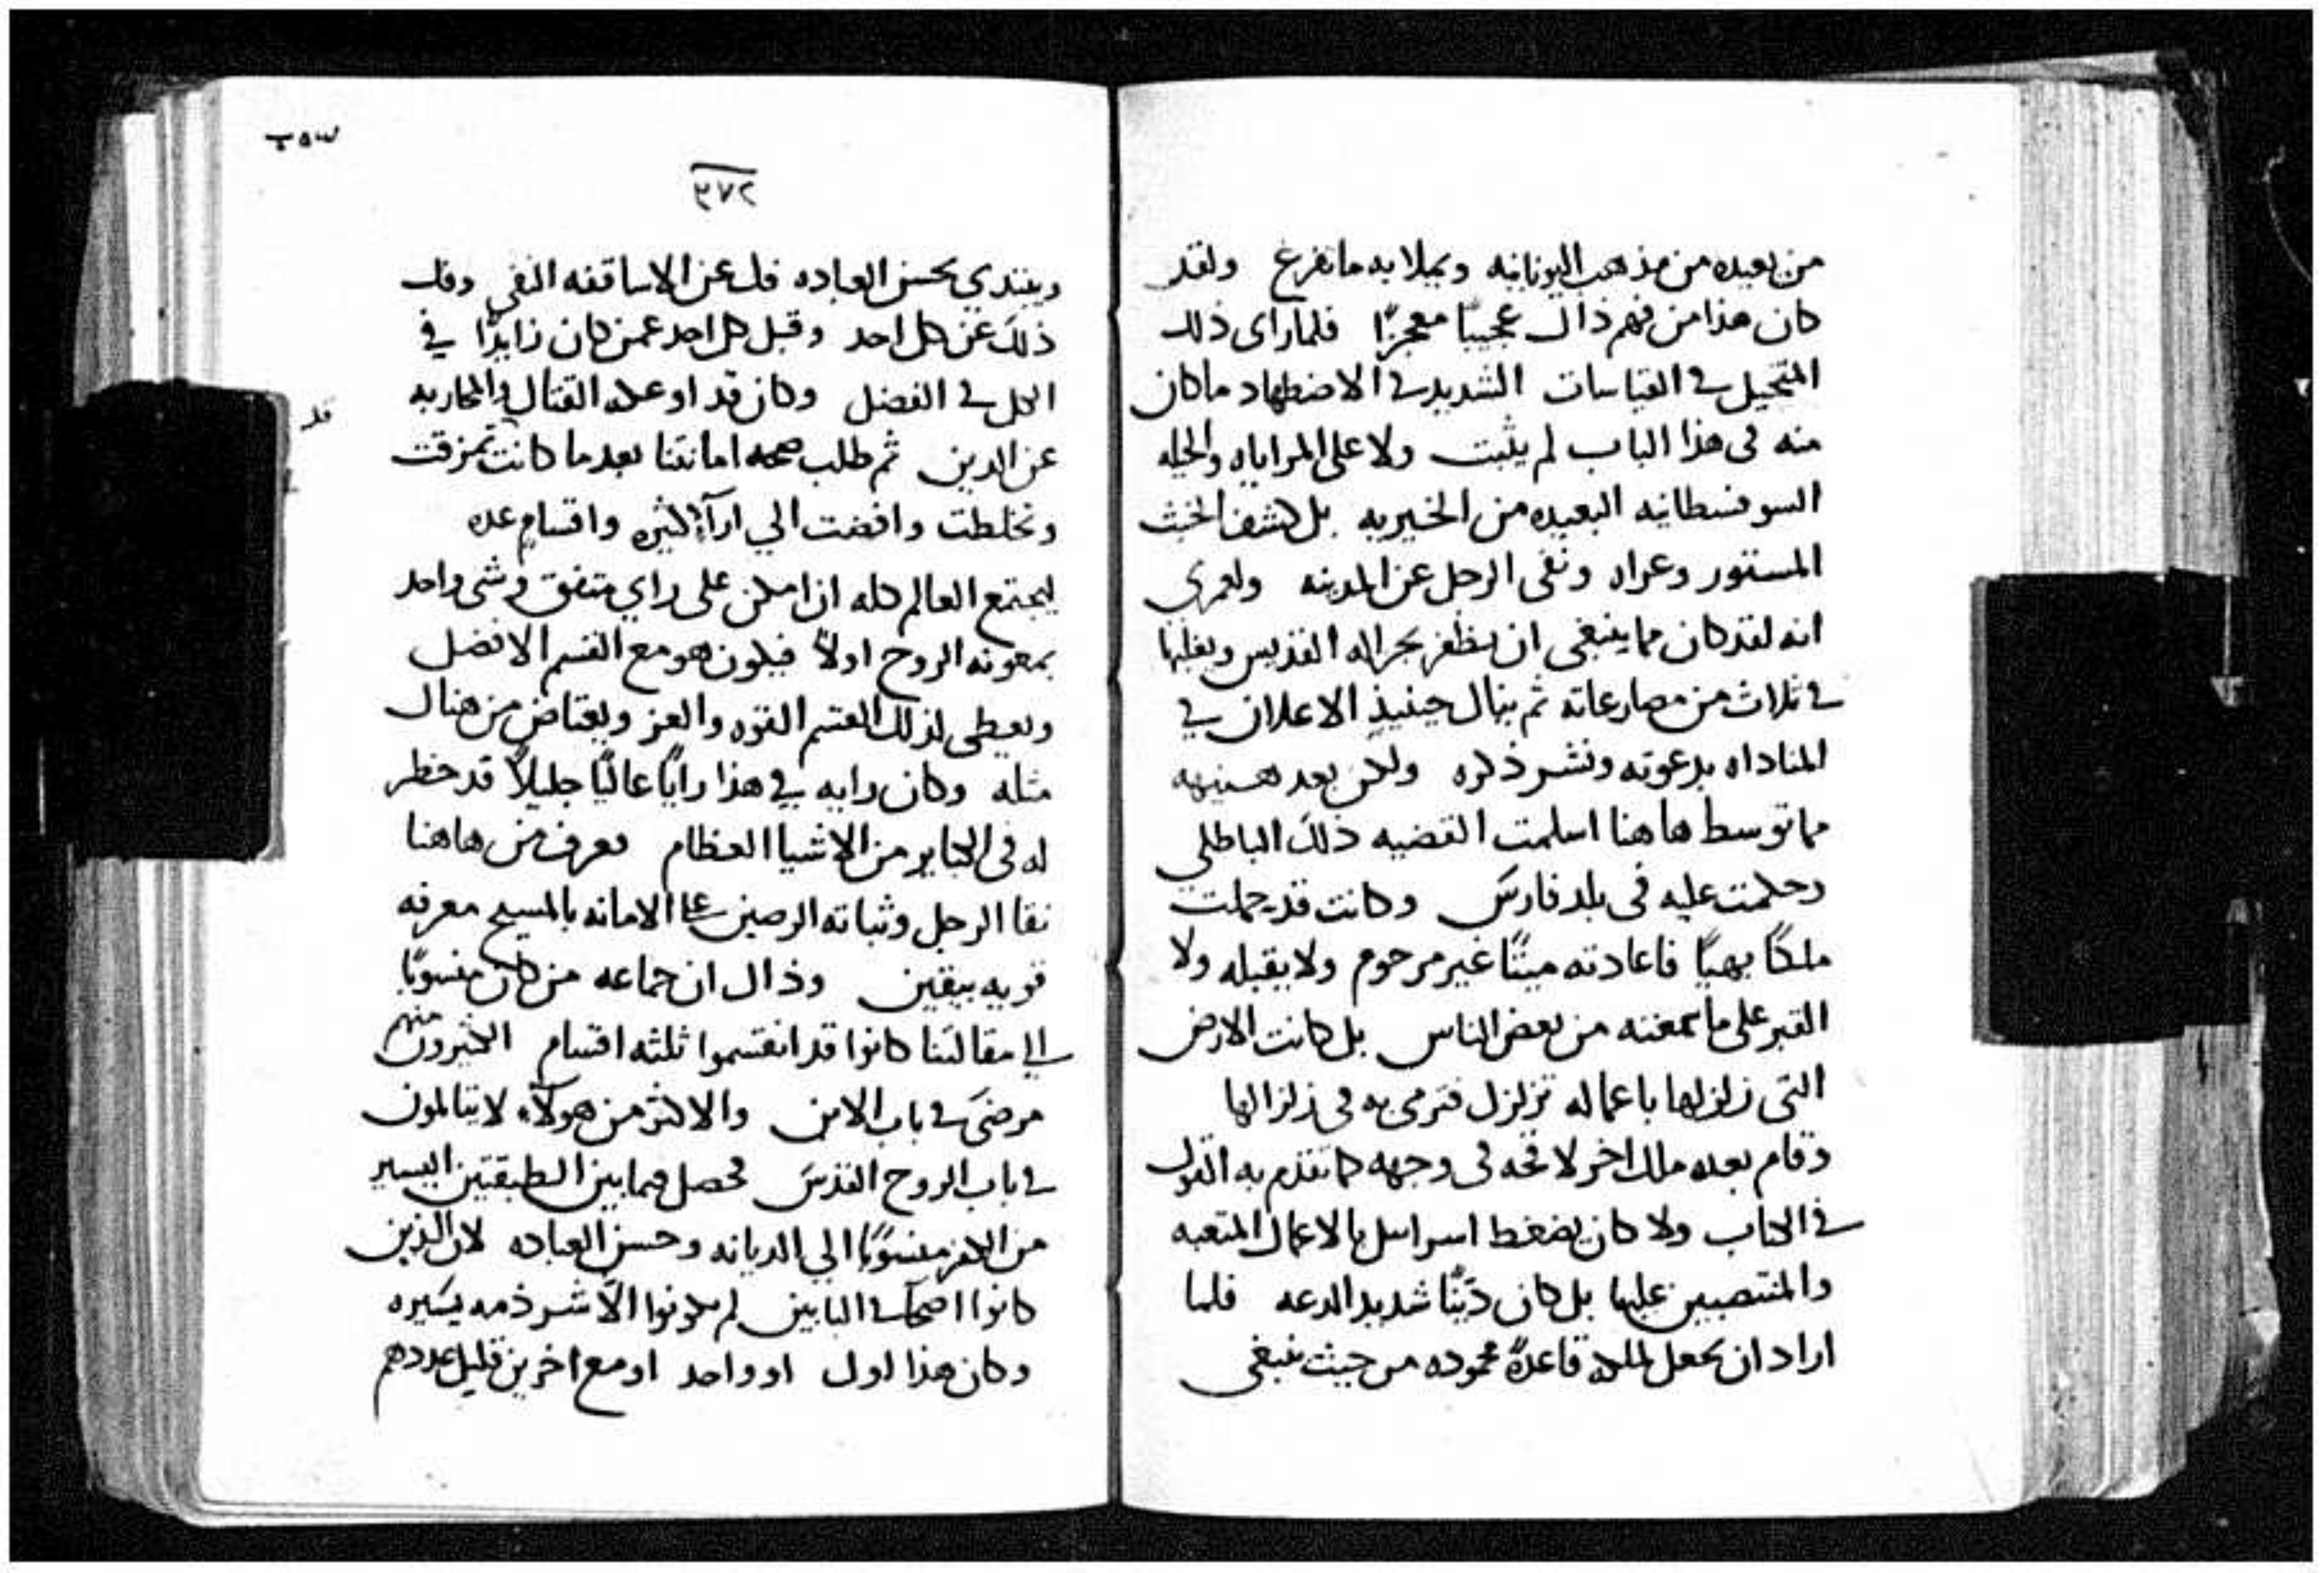 من بعيده من مذهب اليونانيه ويملا به ما تفرغ ولقد
كان هذا من فهم ذاك عجيبًا معجزًا فلما راى ذلك
المتحيل في القياسات الشديد في الاضطهاد ما كان
منه في هذا الباب لم يثبت ولا على المراياه والحيله
السوفسطانيه البعيده من الخيريه بل كشف الخبث
المستور وعراه ونفى الرجل عن المدينه ولعمري
انه لقد كان مما ينبغي ان يظفر بحراله القديس ويغلبها
في ثلاث من مصارعاته ثم ينال حينيذٍ الاعلان في
المناداه بدعوته ونشر ذكره ولكن بعد هنيهه
مما توسط هاهنا اسلمت القضيه ذلك الباطلي
وحكمت عليه في بلد فارس وكانت قد حملت
ملكًا بهيًا فاعادته ميتًا غير مرحوم ولا يقبله ولا
القبر على ما سمعته من بعض الناس بل كانت الارض
التى زلزلها باعماله تزلزل فترمى به في زلزالها
وقام بعده ملك اخر لا قحه في وجهه كما تقدم به القول
في الكتاب ولا كان يضغط اسراييل بالاعمال المتعبه
والمنتصبين عليها بل كان ديّنًا شديد الدعه فلما
اراد ان يجعل لملكه قاعدةً محموده من حيث ينبغي
٣٧٢
ويبتدي بحسن العباده فك عن الاساقفه النفي وفك
ذلك عن كل احد وقبل كل احد عمن كان زايدًا في
الكل في الفضل وكان قد اوعك القتال والمحاربه
قد
عن الدين ثم طلب صحه امانتنا بعد ما كانت تمزقت
وتخلطت وافضت الي ارآء كثيره واقسام عده
ليجتمع العالم كله ان امكن على راي متفق وشى واحد
بمعونه الروح اولاً فيكون هو مع القسم الافضل
ويعطى لذلك القسم القوه والعز ويعتاض من هناك
مثله وكان رايه في هذا رايًا عاليًا جليلاً قد خطر
له في الكباير من الاشيا العظام فعرف من هاهنا
نقا الرجل وثباته الرصين على الامانه بالمسيح معرفه
قويه بيقين وذاك ان جماعه من كان منسوبًا
الى مقالتنا كانوا قد انقسموا ثلثه اقسام الكثيرون منهم
مرضى في باب الابن والاكثر من هولآء لا يتالمون
في باب الروح القدس فحصل فيما بين الطبقتين اليسير
من الكفر منسوبًا الي الديانه وحسن العباده لان الذين
كانوا اصحآ في البابين لم يكونوا الّا شرذمه يسيره
وكان هذا اول او واحد او مع اخرين قليل عددهم